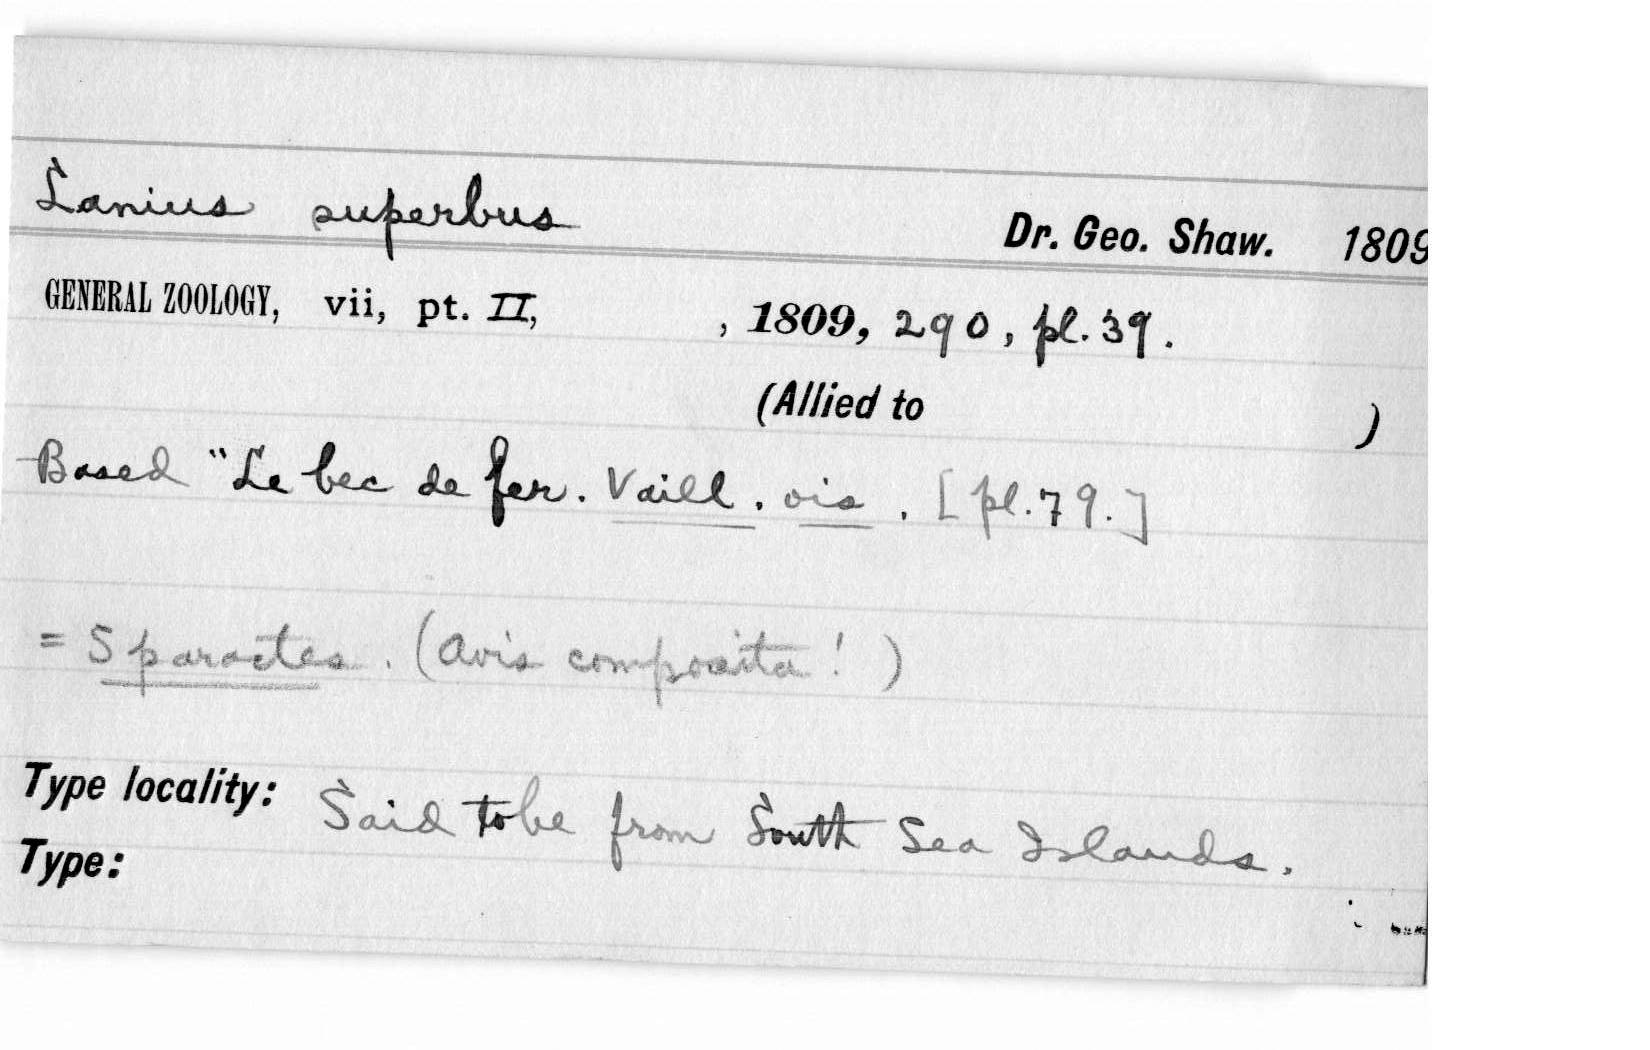 Lanius superbus Dr. Geo. Shaw. 1809
GENERAL ZOOLOGY, vii, pt. II, , 1809, 290, pl. 39.
(Allied to )
Based "Le bec de fer. Vaill. ois. [pl. 79.]
= Sparactes. (Avis composita! )
Type locality: Said to be from South Sea Islands.
Type: